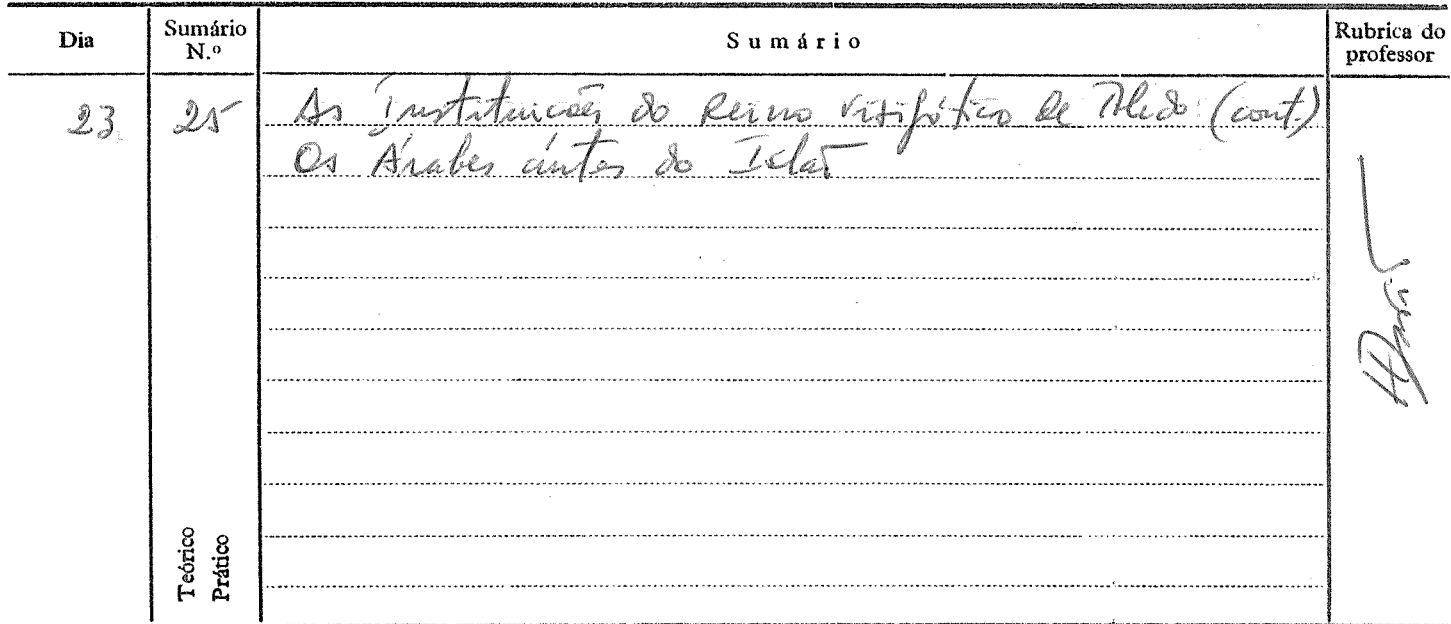 Dia Sumário N.º Sumário Rubrica do professor
23 25 As Instituições do Reino Visigótico de Toledo (cont.)
Os Árabes ántes do Islão
Teórico
Prático